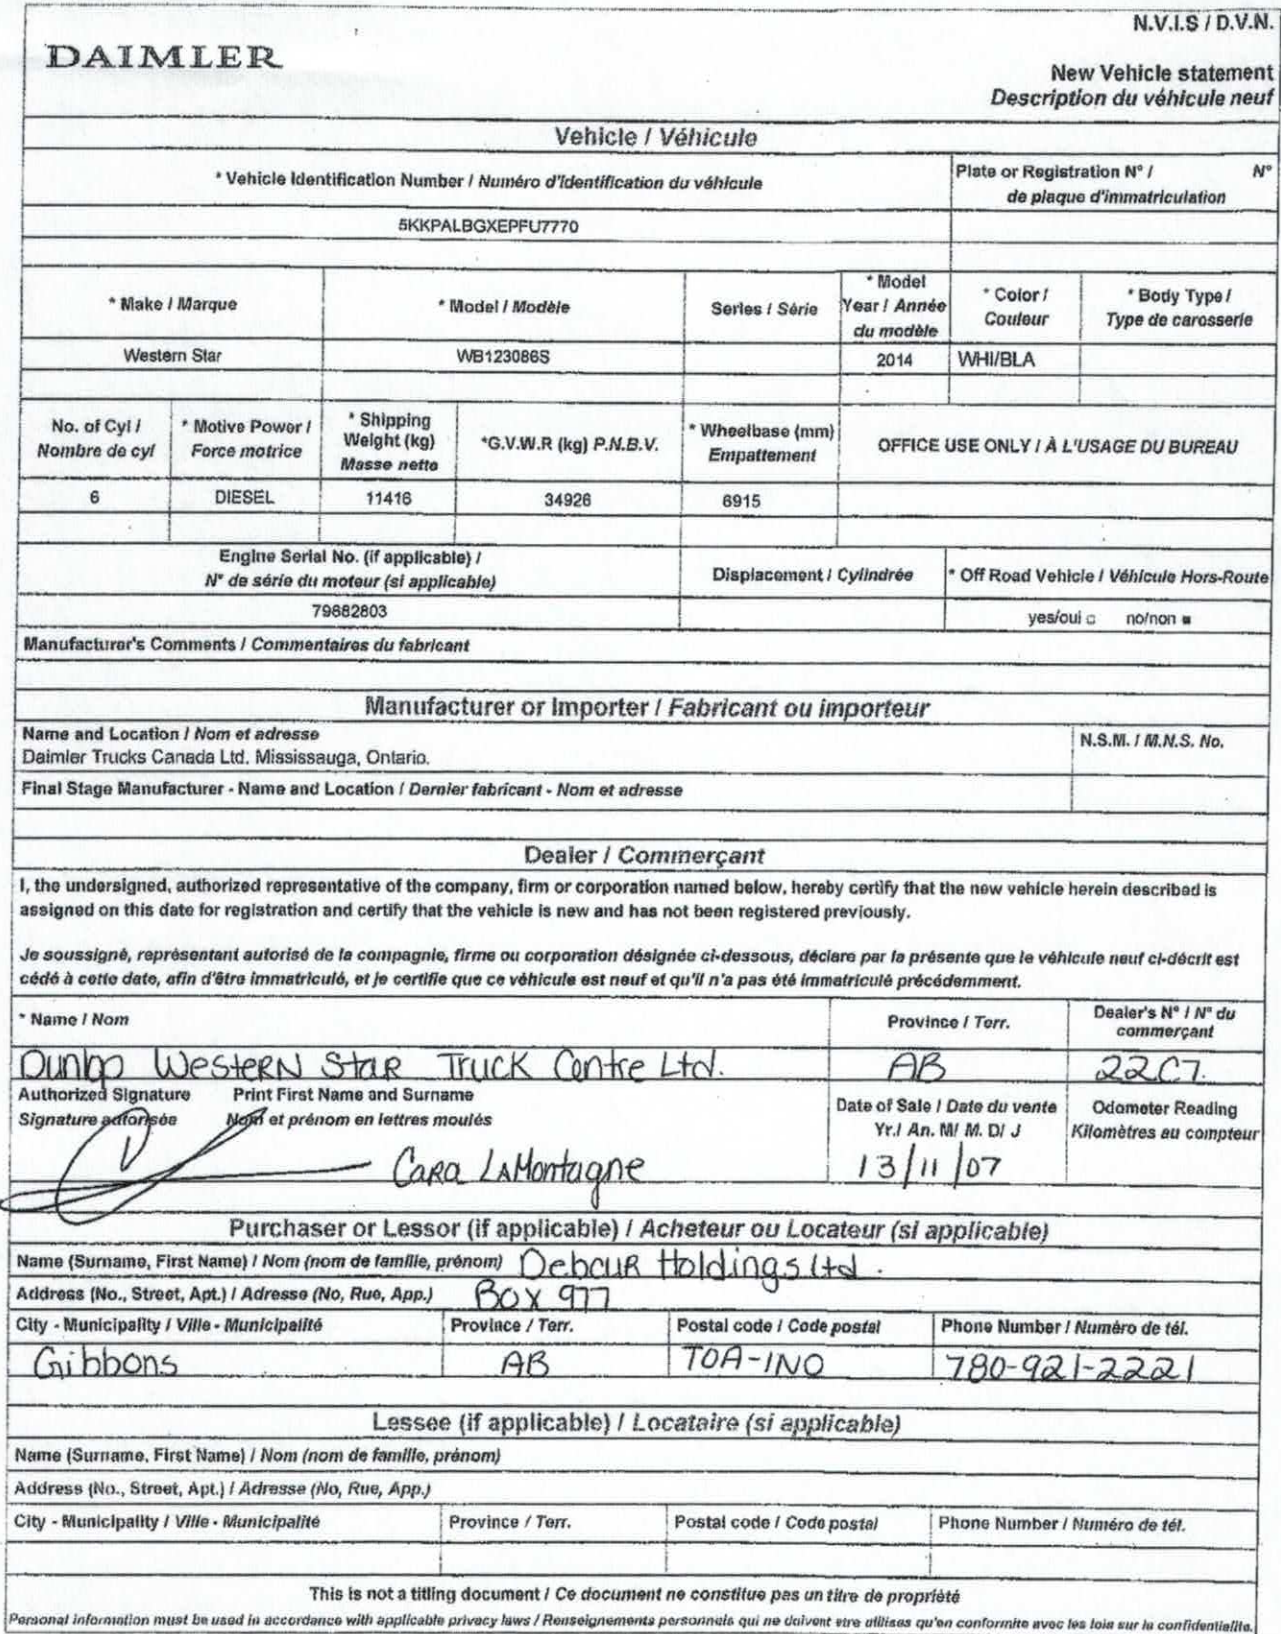 N.V.I.S / D.V.N.
DAIMLER
New Vehicle statement
Description du véhicule neuf
Vehicle / Véhicule
* Vehicle Identification Number / Numéro d'identification du véhicule
Plate or Registration N° / N°
de plaque d'immatriculation
5KKPALBGXEPFU7770
* Make / Marque
* Model / Modèle
Series / Série
* Model
Year / Année
du modèle
* Color /
Couleur
* Body Type /
Type de carosserie
Western Star
WB123086S
2014
WHI/BLA
No. of Cyl /
Nombre de cyl
* Motive Power /
Force motrice
* Shipping
Weight (kg)
Masse nette
*G.V.W.R (kg) P.N.B.V.
* Wheelbase (mm)
Empattement
OFFICE USE ONLY / À L'USAGE DU BUREAU
6
DIESEL
11416
34926
6915
Engine Serial No. (if applicable) /
N° de série du moteur (si applicable)
Displacement / Cylindrée
* Off Road Vehicle / Véhicule Hors-Route
79682803
yes/oui □ no/non ■
Manufacturer's Comments / Commentaires du fabricant
Manufacturer or Importer / Fabricant ou importeur
Name and Location / Nom et adresse
Daimler Trucks Canada Ltd. Mississauga, Ontario.
N.S.M. / M.N.S. No.
Final Stage Manufacturer - Name and Location / Dernier fabricant - Nom et adresse
Dealer / Commerçant
I, the undersigned, authorized representative of the company, firm or corporation named below, hereby certify that the new vehicle herein described is
assigned on this date for registration and certify that the vehicle is new and has not been registered previously.
Je soussigné, représentant autorisé de la compagnie, firme ou corporation désignée ci-dessous, déclare par la présente que le véhicule neuf ci-décrit est
cédé à cette date, afin d'être immatriculé, et je certifie que ce véhicule est neuf et qu'il n'a pas été immatriculé précédemment.
* Name / Nom
Province / Terr.
Dealer's N° / N° du
commerçant
Dunlop Western Star Truck Centre Ltd.
AB
22C7.
Authorized Signature
Signature autorisée
Print First Name and Surname
Nom et prénom en lettres moulés
Date of Sale / Date du vente
Yr./ An. M/ M. D/ J
Odometer Reading
Kilomètres au compteur
Cara LaMontagne
13/11/07
Purchaser or Lessor (if applicable) / Acheteur ou Locateur (si applicable)
Name (Surname, First Name) / Nom (nom de famille, prénom) Debcur Holdings Ltd.
Address (No., Street, Apt.) / Adresse (No, Rue, App.) Box 977
City - Municipality / Ville - Municipalité
Province / Terr.
Postal code / Code postal
Phone Number / Numéro de tél.
Gibbons
AB
T0A-1N0
780-921-2221
Lessee (if applicable) / Locataire (si applicable)
Name (Surname, First Name) / Nom (nom de famille, prénom)
Address (No., Street, Apt.) / Adresse (No, Rue, App.)
City - Municipality / Ville - Municipalité
Province / Terr.
Postal code / Code postal
Phone Number / Numéro de tél.
This is not a titling document / Ce document ne constitue pas un titre de propriété
Personal information must be used in accordance with applicable privacy laws / Renseignements personnels qui ne doivent etre utilises qu'en conformite avec les lois sur la confidentialite.